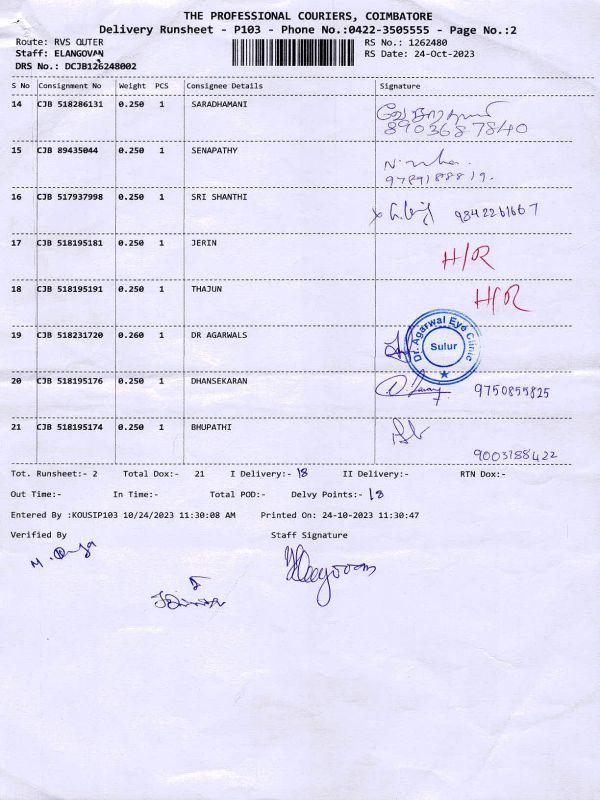 THE PROFESSIONAL COURIERS, COIMBATORE
Delivery Runsheet - P103 - Phone No.:0422-3505555 - Page No.:2
Route: RVS OUTER RS No.: 1262480
Staff: ELANGOVAN RS Date: 24-Oct-2023
DRS No.: DCJB126248002
S No Consignment No Weight PCS Consignee Details Signature
14 CJB 518286131 0.250 1 SARADHAMANI
8903687840
15 CJB 89435044 0.250 1 SENAPATHY
9789188819.
16 CJB 517937998 0.250 1 SRI SHANTHI 9842261667
17 CJB 518195181 0.250 1 JERIN H/R
18 CJB 518195191 0.250 1 THAJUN H/R
19 CJB 518231720 0.260 1 DR AGARWALS Dr. Agarwal Eye Clinic Sulur
20 CJB 518195176 0.250 1 DHANSEKARAN 9750855825
21 CJB 518195174 0.250 1 BHUPATHI
9003188422
Tot. Runsheet:- 2 Total Dox:- 21 I Delivery:- 18 II Delivery:- RTN Dox:-
Out Time:- In Time:- Total POD:- Delvy Points:- 18
Entered By :KOUSIP103 10/24/2023 11:30:08 AM Printed On: 24-10-2023 11:30:47
Verified By Staff Signature